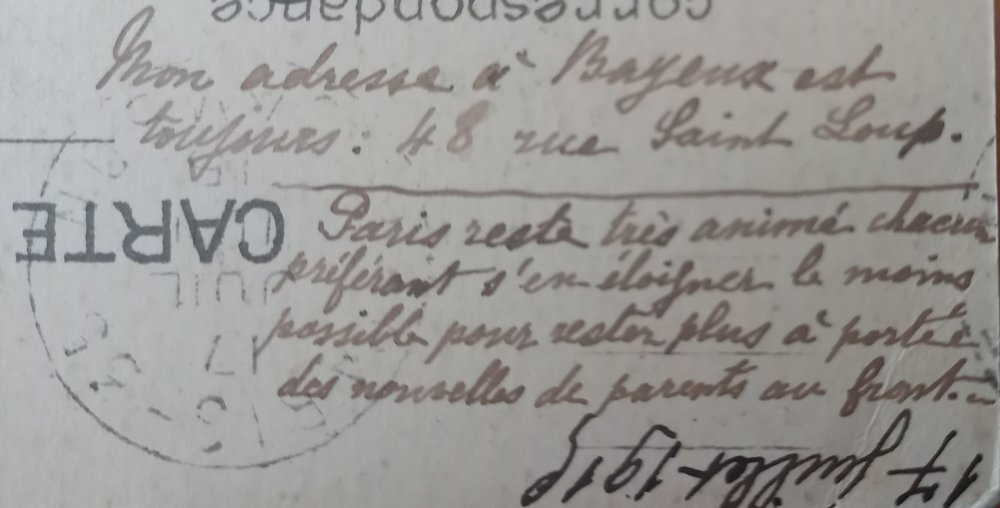 correspondance
Mon adresse à Bayeux est
toujours : 48 rue Saint Loup.
CARTE
Paris reste très animé chacun
préférant s'en éloigner le moins
possible pour rester plus à portée
des nouvelles de parents au front.
17 juillet 1915